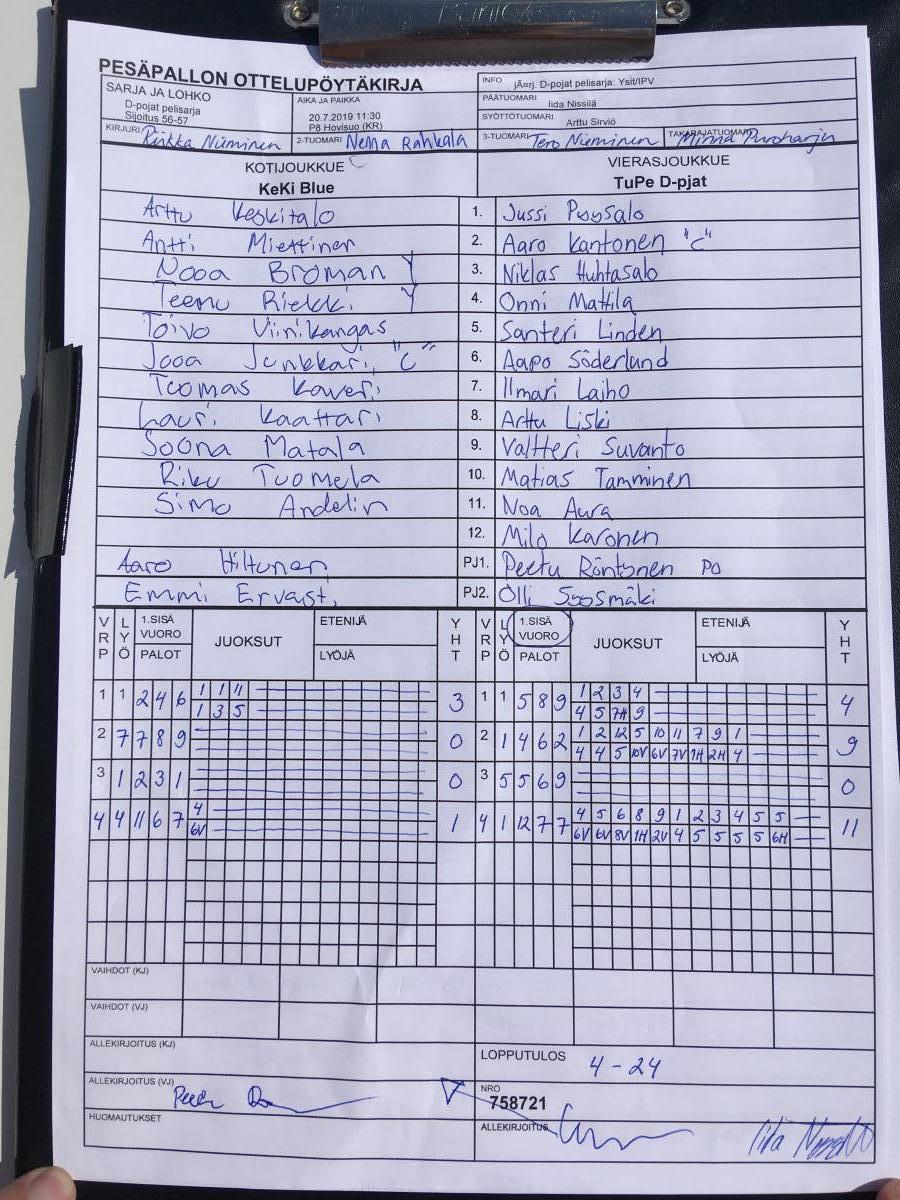 PESÄPALLON OTTELUPÖYTÄKIRJA
SARJA JA LOHKO
D-pojat pelisarja
Sijoitus 56-57
AIKA JA PAIKKA
20.7.2019 11:30
P8 Hovisuo (KR)
INFO jÃ¤rj. D-pojat pelisarja: Ysit/IPV
PÄÄTUOMARI Iida Nissilä
SYÖTTÖTUOMARI Arttu Sirviö
KIRJURI Pirkka Nieminen 2-TUOMARI Nella Rahkala 3-TUOMARI Tero Nieminen TAKARAJATUOMARI Minna Puroharju
KOTIJOUKKUE VIERASJOUKKUE
KeKi Blue TuPe D-pjat
Arttu Keskitalo 1. Jussi Puosalo
Antti Miettinen 2. Aaro Kantonen "C"
Nooa Broman Y 3. Niklas Huhtasalo
Teemu Riekki Y 4. Onni Mattila
Toivo Viinikangas 5. Santeri Linden
Jooa Junkkari "C" 6. Aapo Söderlund
Tuomas Kaveri 7. Ilmari Laiho
Lauri Kaattari 8. Arttu Liski
Soona Matala 9. Valtteri Suvanto
Riku Tuomela 10. Matias Tamminen
Simo Andelin 11. Noa Aura
12. Milo Karonen
Aaro Hiltunen PJ1. Peetu Röntynen PO
Emmi Ervasti PJ2. Olli Suosmäki
VRP LYÖ 1.SISÄ VUORO PALOT JUOKSUT ETENIJÄ LYÖJÄ YHT VRP LYÖ 1.SISÄ VUORO PALOT JUOKSUT ETENIJÄ LYÖJÄ YHT
1 1 2 4 6 1 1 11 3 1 1 5 8 9 1 2 3 4 4
1 3 5 4 5 7H 9
2 7 7 8 9 0 2 1 4 6 2 1 2 12 5 10 11 7 9 1 9
4 4 5 10V 6V 7V 1H 2H 4
3 1 2 3 1 0 3 5 5 6 9 0
4 4 11 6 7 4 1 4 1 12 7 7 4 5 6 8 9 1 2 3 4 5 5 11
6V 6V 6V 8V 1H 2V 4 5 5 5 5 6H
VAIHDOT (KJ)
VAIHDOT (VJ)
ALLEKIRJOITUS (KJ)
LOPPUTULOS 4 - 24
ALLEKIRJOITUS (VJ)
NRO
758721
HUOMAUTUKSET
ALLEKIRJOITUS